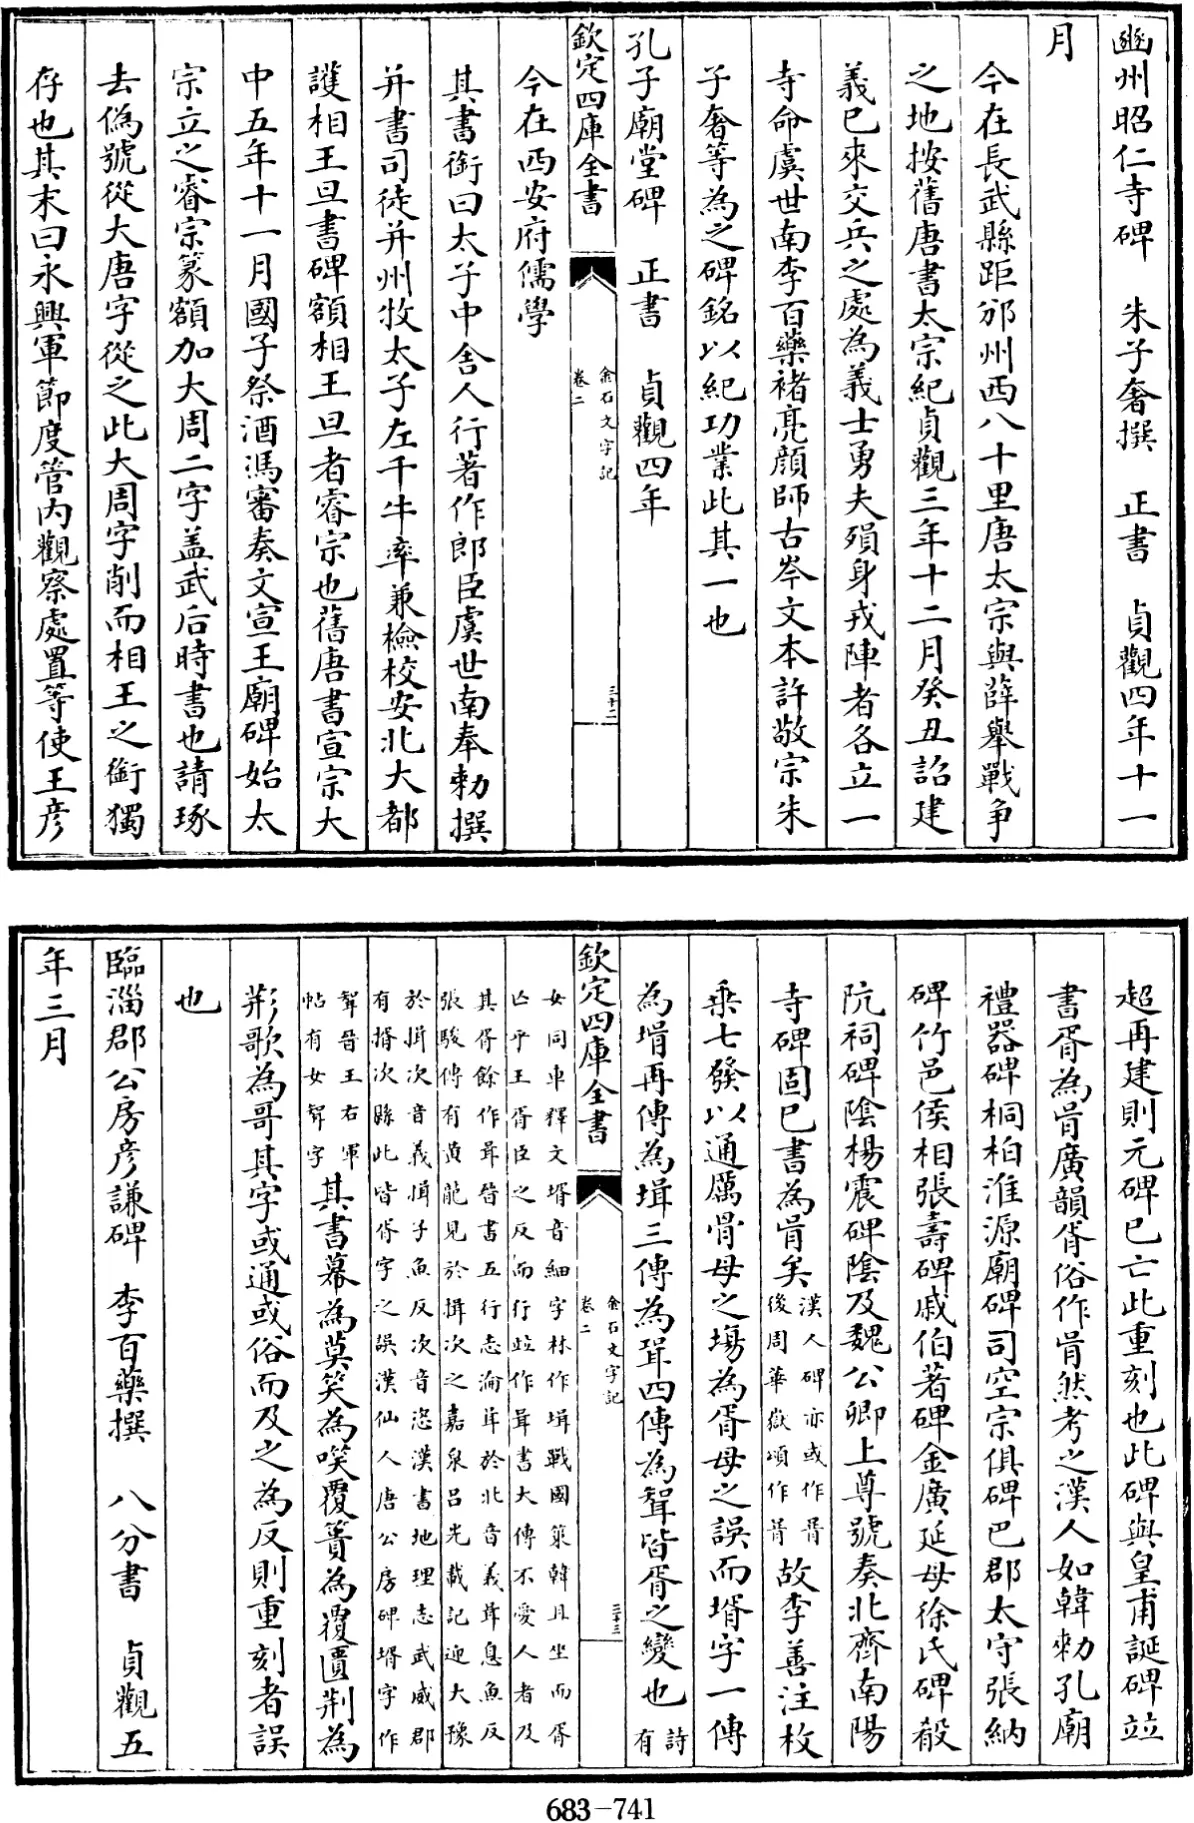 豳州昭仁寺碑　朱子奢撰　正書　貞觀四年十一
月
今在長武縣距邠州西八十里唐太宗與薛舉戰爭
之地按舊唐書太宗紀貞觀三年十二月癸丑詔建
義已來交兵之處為義士勇夫殞身戎陣者各立一
寺命虞世南李百藥褚亮顏師古岑文本許敬宗朱
子奢等為之碑銘以紀功業此其一也
孔子廟堂碑　正書　貞觀四年
欽定四庫全書　金石文字記　卷二　三十二
今在西安府儒學
其書銜曰太子中舍人行著作郎臣虞世南奉勅撰
并書司徒并州牧太子左千牛率兼檢校安北大都
護相王旦書碑額相王旦者睿宗也舊唐書宣宗大
中五年十一月國子祭酒馮審奏文宣王廟碑始太
宗立之睿宗篆額加大周二字盖武后時書也請琢
去偽號從大唐字從之此大周字削而相王之銜獨
存也其末曰永興軍節度管内觀察處置等使王彥
超再建則元碑已亡此重刻也此碑與皇甫誕碑竝
書胥為㕛廣韻胥俗作㕛然考之漢人如韓勅孔廟
禮器碑桐柏淮源廟碑司空宗俱碑巴郡太守張納
碑竹邑侯相張壽碑戚伯著碑金廣延母徐氏碑殽
阮祠碑陰楊震碑陰及魏公卿上尊號奏北齊南陽
寺碑固已書為㕛矣漢人碑亦或作㕛後周華嶽頌作㕛故李善注枚
乘七發以通厲骨母之場為胥母之誤而壻字一傳
為壻再傳為堸三傳為聓四傳為聟皆胥之變也詩有
欽定四庫全書　金石文字記　卷二　三十三
女同車釋文壻音細字林作堸戰國策韓且坐而胥亡乎王胥臣之反而行竝作咠書大傳不愛人者及
其胥餘作咠晉書五行志淪咠於北音義咠息魚反張駿傳有黄龍見於揖次之嘉泉吕光載記迎大豫
於揖次音義揟子魚反次音恣漢書地理志武威郡有揟次縣此皆胥字之誤漢仙人唐公房碑壻字作
聟晉王右軍帖有女聟字其書幕為莫笑為㗛覆簣為覆匱荆為
㓝歌為哥其字或通或俗而及之為反則重刻者誤
也
臨淄郡公房彥謙碑　李百藥撰　八分書　貞觀五
年三月
683-741